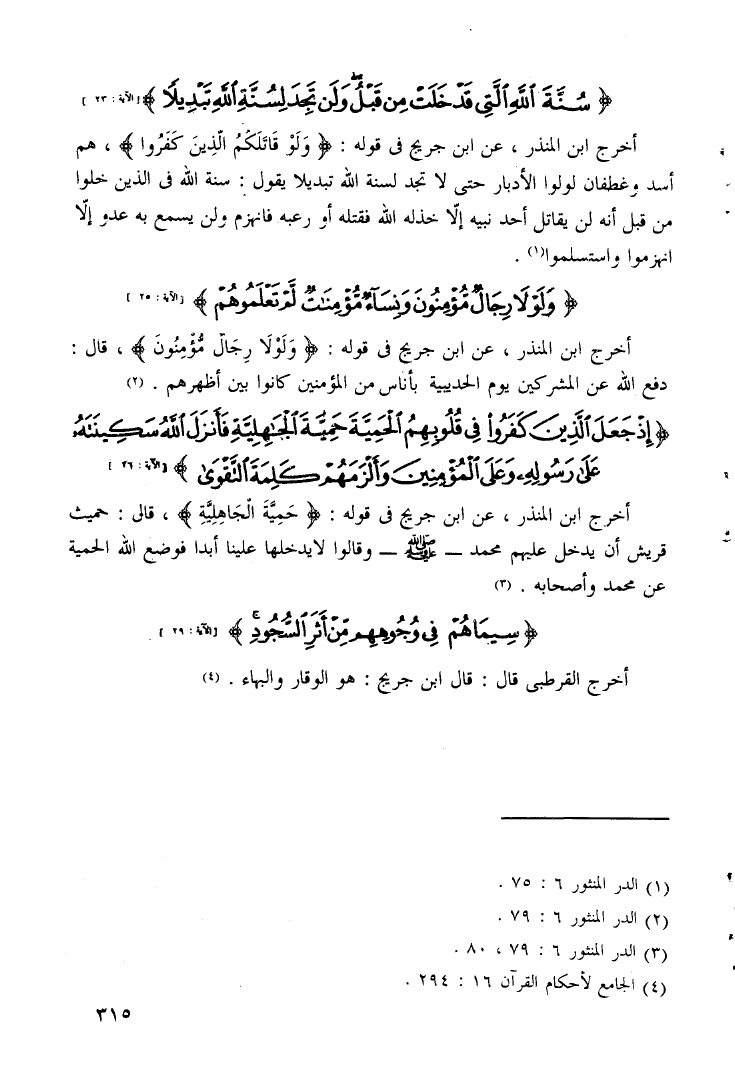 ﴿ سُنَّةَ ٱللَّهِ ٱلَّتِى قَدْ خَلَتْ مِن قَبْلُ ۖ وَلَن تَجِدَ لِسُنَّةِ ٱللَّهِ تَبْدِيلًا ﴾ [الآية : ٢٣ ]
أخرج ابن المنذر ، عن ابن جريج فى قوله : ﴿ وَلَوْ قَاتَلَكُمُ الَّذِينَ كَفَرُوا ﴾ ، هم
أسد وغطفان لولوا الأدبار حتى لا تجد لسنة الله تبديلا يقول : سنة الله فى الذين خلوا
من قبل أنه لن يقاتل أحد نبيه إلّا خذله الله فقتله أو رعبه فانهزم ولن يسمع به عدو إلّا
انهزموا واستسلموا(١) .
﴿ وَلَوْلَا رِجَالٌ مُّؤْمِنُونَ وَنِسَآءٌ مُّؤْمِنَٰتٌ لَّمْ تَعْلَمُوهُمْ ﴾ [الآية : ٢٥ ]
أخرج ابن المنذر ، عن ابن جريج فى قوله : ﴿ وَلَوْلَا رِجَالٌ مُّؤْمِنُونَ ﴾ ، قال :
دفع الله عن المشركين يوم الحديبية بأناس من المؤمنين كانوا بين أظهرهم . (٢)
﴿ إِذْ جَعَلَ ٱلَّذِينَ كَفَرُوا۟ فِى قُلُوبِهِمُ ٱلْحَمِيَّةَ حَمِيَّةَ ٱلْجَٰهِلِيَّةِ فَأَنزَلَ ٱللَّهُ سَكِينَتَهُۥ
عَلَىٰ رَسُولِهِۦ وَعَلَى ٱلْمُؤْمِنِينَ وَأَلْزَمَهُمْ كَلِمَةَ ٱلتَّقْوَىٰ ﴾ [الآية : ٢٦ ]
أخرج ابن المنذر ، عن ابن جريج فى قوله : ﴿ حَمِيَّةَ الْجَاهِلِيَّةِ ﴾ ، قال : حميت
قريش أن يدخل عليهم محمد ــ ﷺ ــ وقالوا لايدخلها علينا أبدا فوضع الله الحمية
عن محمد وأصحابه . (٣)
﴿ سِيمَاهُمْ فِى وُجُوهِهِم مِّنْ أَثَرِ ٱلسُّجُودِ ۚ ﴾ [الآية : ٢٩ ]
أخرج القرطبى قال : قال ابن جريج : هو الوقار والبهاء . (٤)
(١) الدر المنثور ٦ : ٧٥ .
(٢) الدر المنثور ٦ : ٧٩ .
(٣) الدر المنثور ٦ : ٧٩ ، ٨٠ .
(٤) الجامع لأحكام القرآن ١٦ : ٢٩٤ .
٣١٥